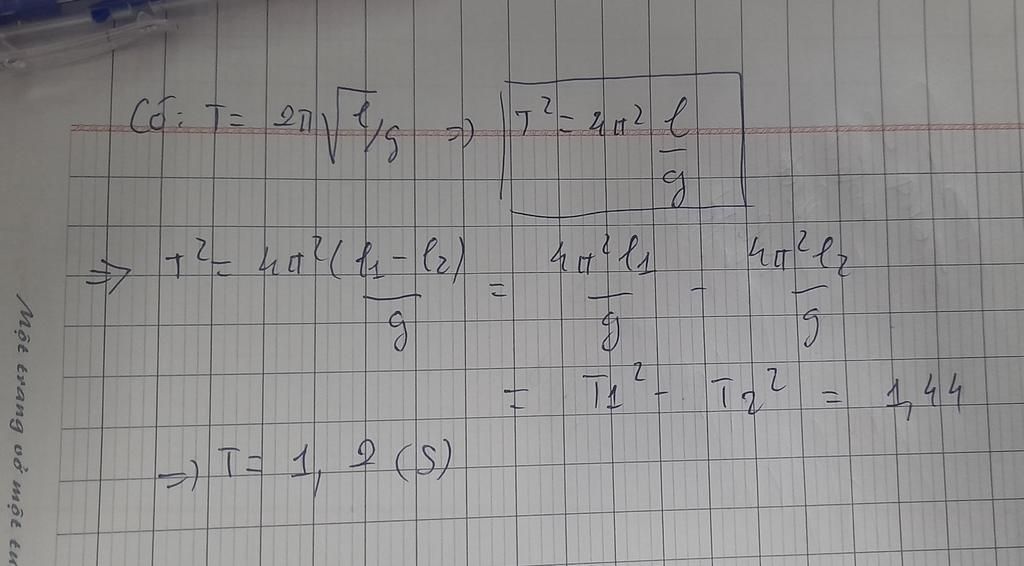 Có: T = 2π√l/g => T² = 4π² l/g
=> T² = 4π² (l1 - l2)/g = 4π² l1/g - 4π² l2/g
= T1² - T2² = 1,44
=> T = 1,2 (S)
Một trang vở một